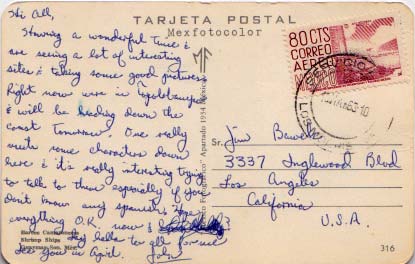 TARJETA POSTAL
Mexfotocolor
Hi All,
Having a wonderful time &
are seeing a lot of interesting
sites & taking some good pictures.
Right now were in
& will be heading down the
coast tomorrow. One really
meets some characters down
here & it's really interesting trying
to talk to them especially if you
don't know any spanish.
everything O.K. now &
Say hello to all for me
see you in April. John
Shrimp Ships
Guaymas, Son. Mex.
Apartado 1934 Mexico
80 CTS
CORREO
AEREO
Sr. Jim
3337 Inglewood Blvd
Los Angeles
California
U.S.A.
316